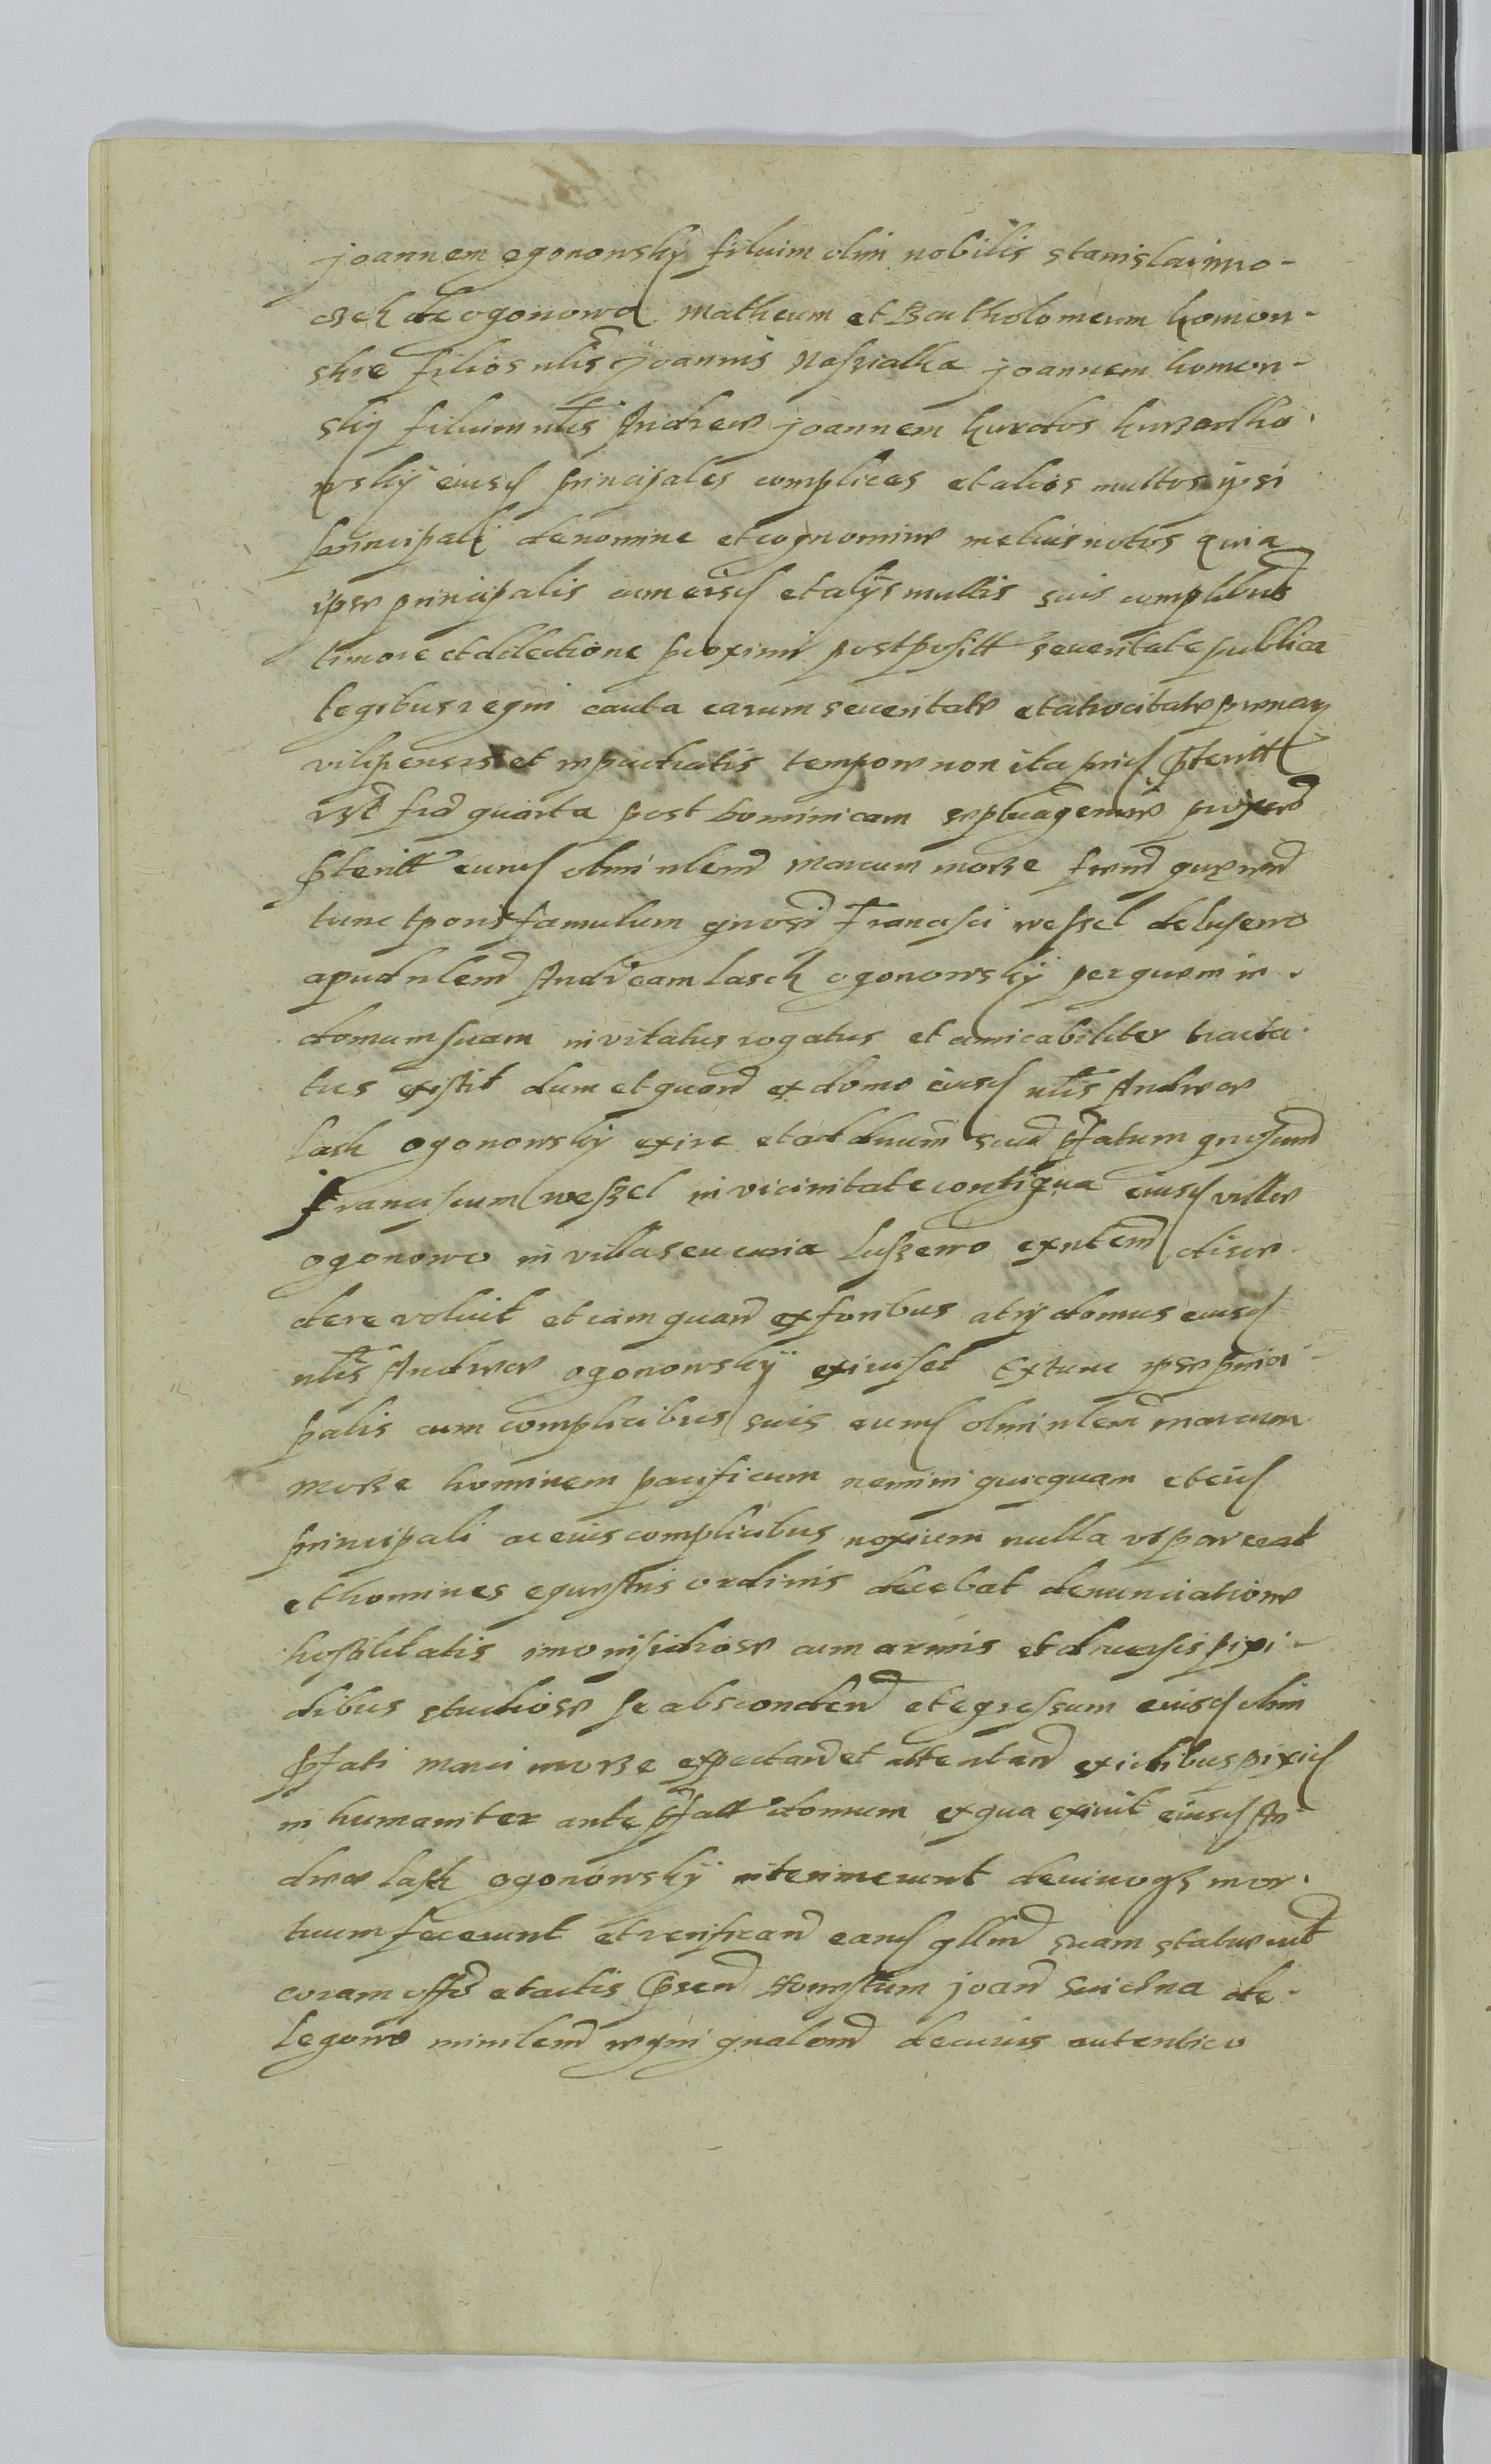 joannem ogonowskij filium olim nobilis stanislai mro-
czek de ogonowo Matheum et Bartholomeum komor-
skie filios nlis joannis Nasziatka joannem komor-
skij filium nlis Andreae joannem kurdos kuczarsko
wskij eiusd principales complices et alios multos ipsi
principali de nomine et cognomine melius notos quia
ipse principalis cum eisd et alijs multis suis complibus
timore et dilectione proximi postpositt seueritate publica
legibus regni cauta earum seueritate et atrocitate penar
vilipensis et tempore non ita prid ptentt
vst fria quarta post dominicam septuagesime proxed
ptentt eund olim nlem Marcum morze
tunc tporis famulum gnosi Francisci wessel de luszewo
apud nlem Andream lasch ogonowskij per quem in
domum suam invitatus rogatus et amicabiliter tracta
tus extitit dum et quand ex domo eiusd nlis Andreae
lask ogonowskij exire et ad dnum suu pfatum gnosum
Franciscum weszel in vicinitate contigua eiusd villae
ogonowo in villa seu curia luszewo exntem disce
dere voluit et iam quand ex foribus atrij domus eiusd
nlis Andreae ogonowskij exiuiset Extunc ipse princi-
palis cum complicibus suis eund olim nlem marcum
morze hominem pacificum nemini quicquam et eid
principali ac eius complicibus noxium nulla vt par erat
et homines equestris ordinis decebat denunciatione
hostilitatis imo insidiose cum armis et diuersis pixi-
dibus studiose se abscondend et egressum eiusd olim
pfati marci morze expectand et attentand ex ictibus pixid
inhumaniter ante pfatt domum ex qua exiuit eiusd An
dreae lask ogonowskij interimerunt de viuoqs mor
tuum fecerunt et verificand eand qllm suam statuerunt
coram offo et actis psen Honestum joan Swietna de
legowo minlem regni gnalem de cuius autentico